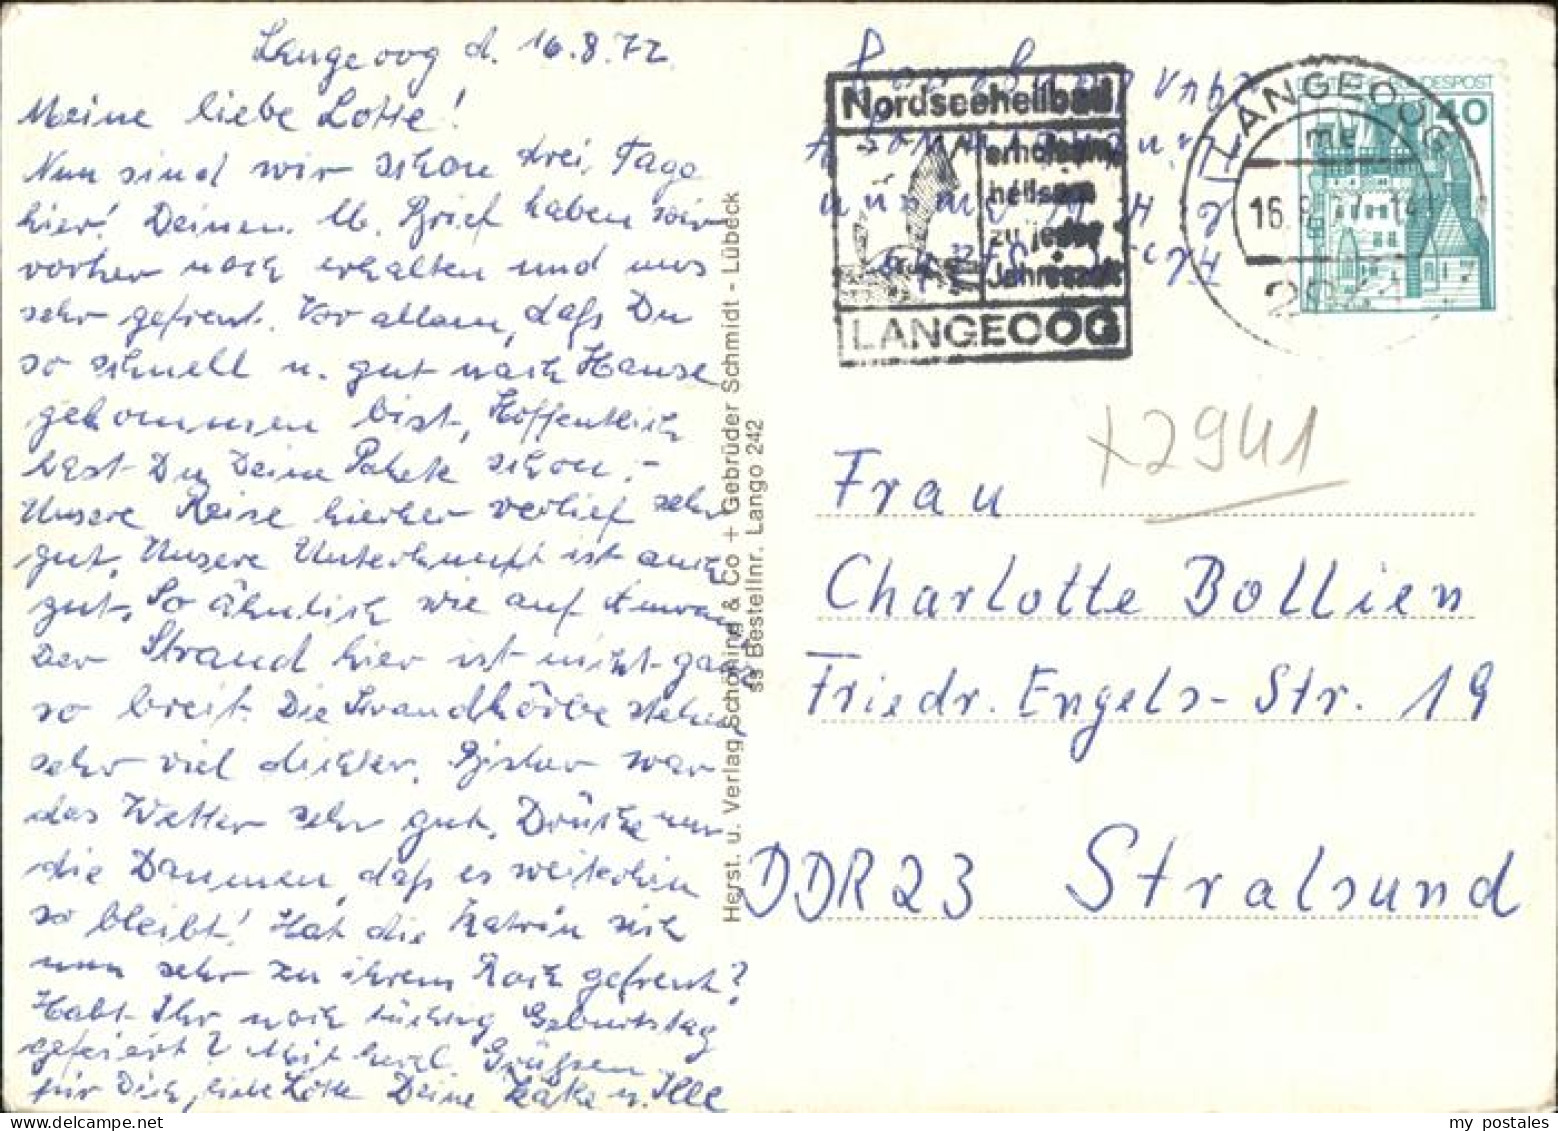 Langeoog d. 16.8.77.
Meine liebe Lotte!
Nun sind wir schon drei Tage
hier! Deinen lb. Brief haben wir
vorher noch erhalten und uns
sehr gefreut. Vor allem, daß Du
so schnell u. gut nach Hause
gekommen bist, Hoffentlich
hast Du Deine Pakete schon.-
Unsere Reise hierher verlief sehr
gut, Unsere Unterkunft ist auch
gut. So ähnlich wie auf
Der Strand hier ist nicht ganz
so breit. Die Strandkörbe stehen
sehr viel dichter. Bisher war
das Wetter sehr gut. Drücke nur
die Daumen, daß es weiterhin
so bleibt! Hat die Katrin sich
nun sehr zu ihrem Rock gefreut?
Habt Ihr noch tüchtig Geburtstag
gefeiert? Mit herzl. Grüßen
für Dich, liebe Lotte Deine Käte u. Ille
Herst. u. Verlag Schöning & Co + Gebrüder Schmidt - Lübeck
ss Bestellnr. Lango 242
Nordseeheilbad
erholsam
heilsam
zu jeder
Jahreszeit
LANGEOOG
LANGEOOG
mc
16.8.77-14
2941
DEUTSCHE BUNDESPOST
40
x2941
Frau
Charlotte Bollien
Friedr. Engels-Str. 19
DDR 23 Stralsund
my postales